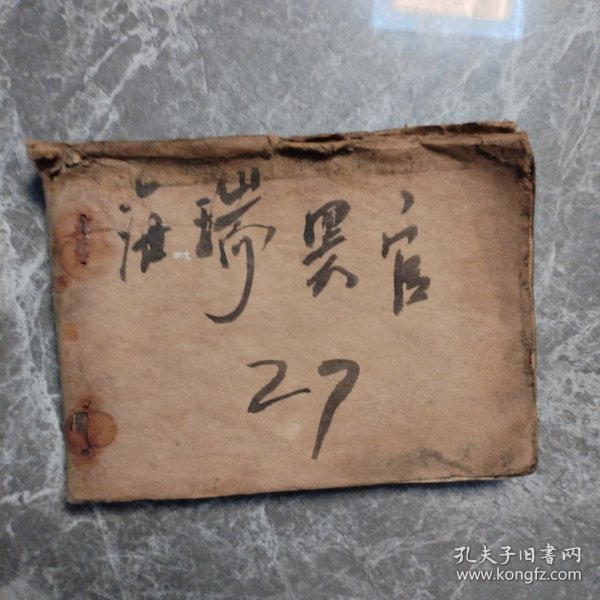 海瑞罢官
27
孔夫子旧书网
www.kongfz.com